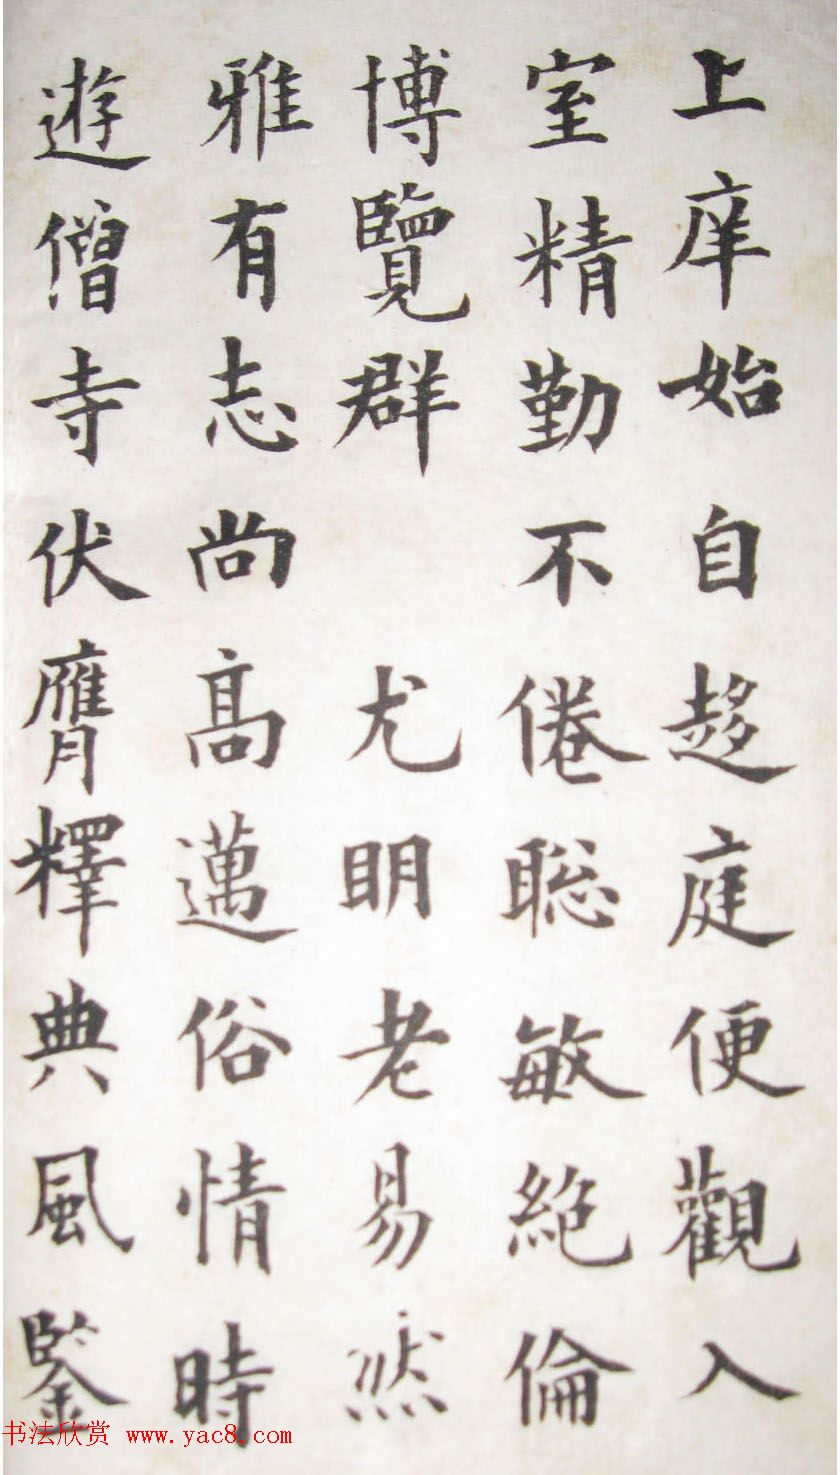 上庠始自趍庭便觀入
室精勤不倦聡敏絶倫
博覽群 尤明老易然
雅有志尚高邁俗情時
遊僧寺伏膺釋典風鑒
书法欣赏 www.yac8.com